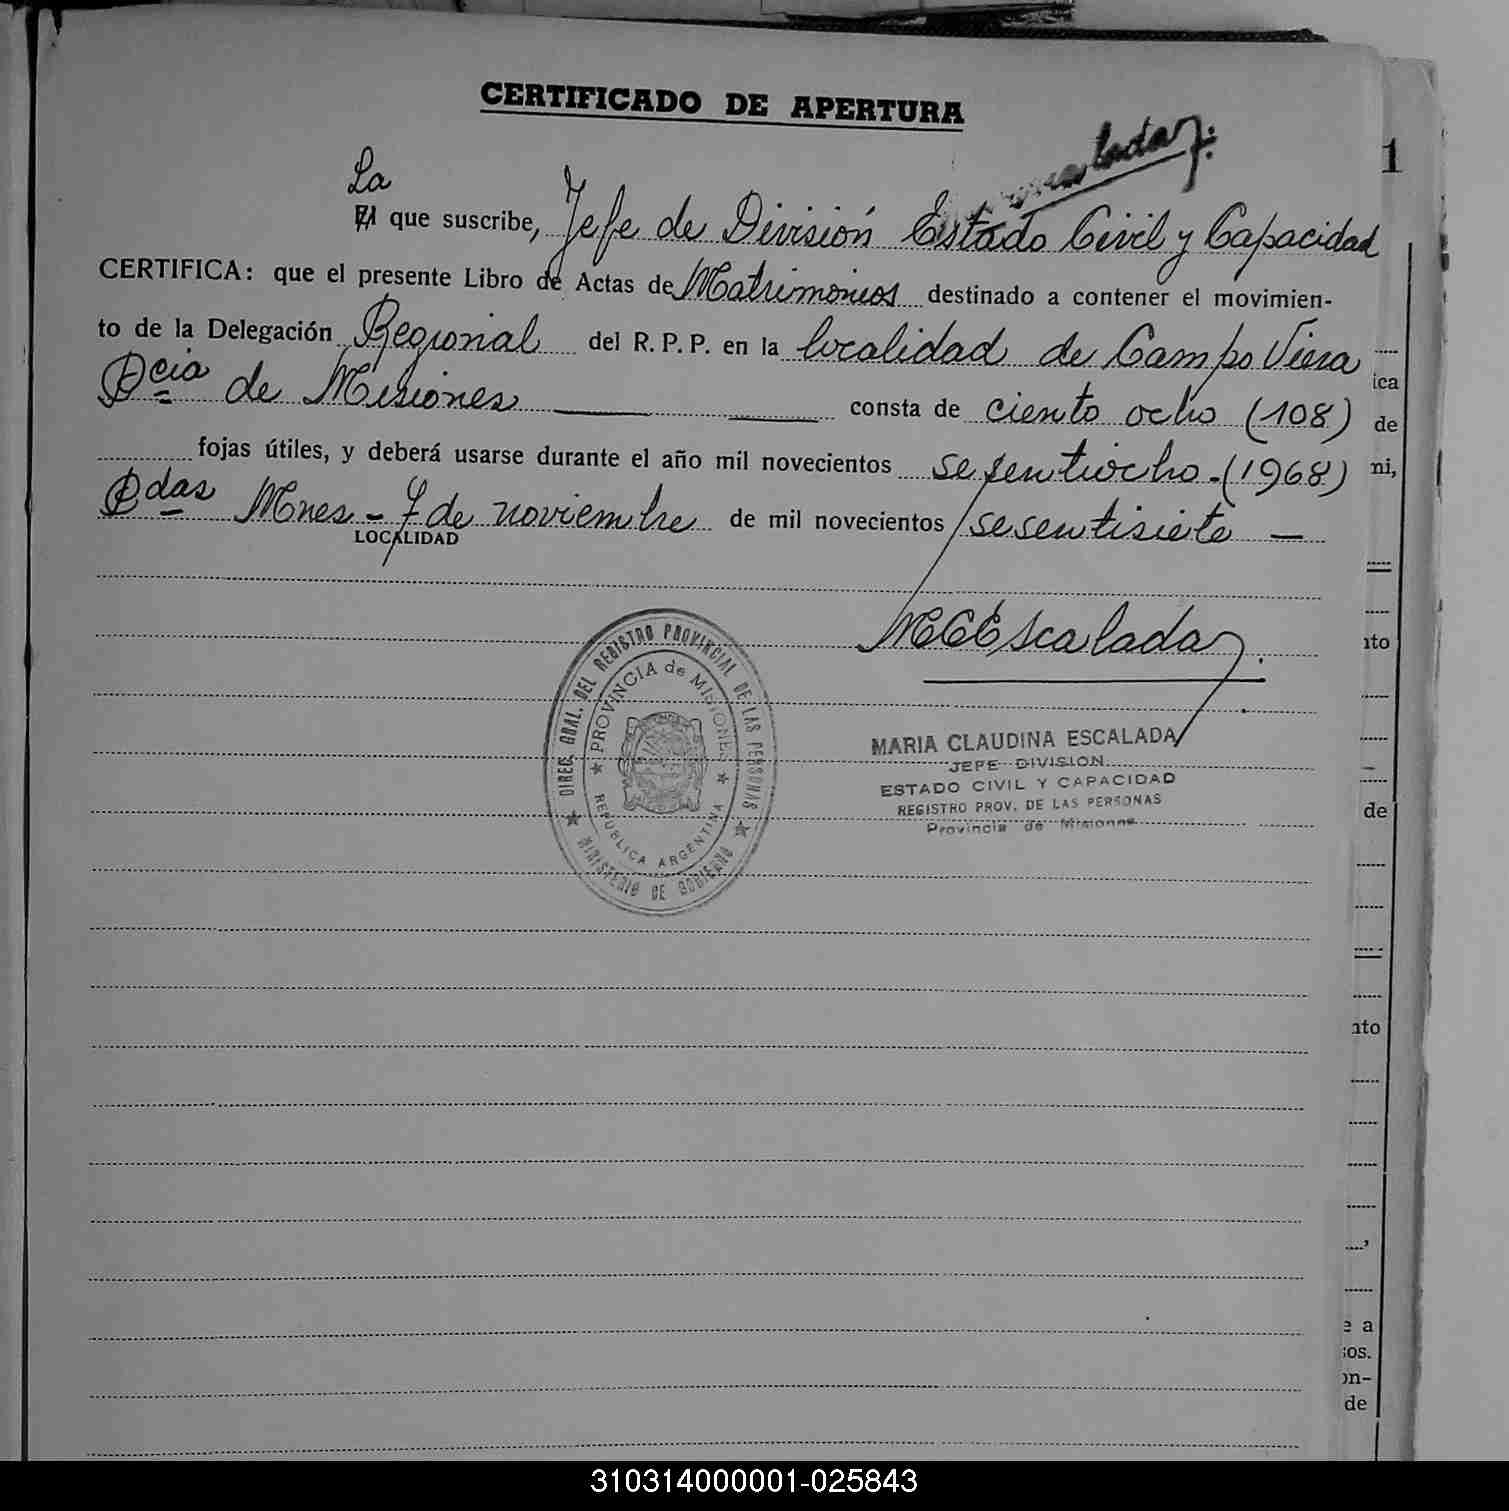 CERTIFICADO DE APERTURA
1
La
El que suscribe, Jefe de División Estado Civil y Capacidad
CERTIFICA: que el presente Libro de Actas de Matrimonios destinado a contener el movimien-
to de la Delegación Regional del R. P. P. en la localidad de Campo Viera
Pcia de Misiones consta de ciento ocho (108)
fojas útiles, y deberá usarse durante el año mil novecientos sesentiocho.-(1968)
Pdas Mnes - 7 de noviembre de mil novecientos sesentisiete -
LOCALIDAD
MCEscalada
DIREC. GRAL. DEL REGISTRO PROVINCIAL DE LAS PERSONAS
PROVINCIA de MISIONES
REPUBLICA ARGENTINA
MINISTERIO DE GOBIERNO
MARIA CLAUDINA ESCALADA
JEFE DIVISION
ESTADO CIVIL Y CAPACIDAD
REGISTRO PROV. DE LAS PERSONAS
Provincia de Misiones
ica
de
ni,
nto
de
nto
e a
sos.
on-
de
310314000001-025843